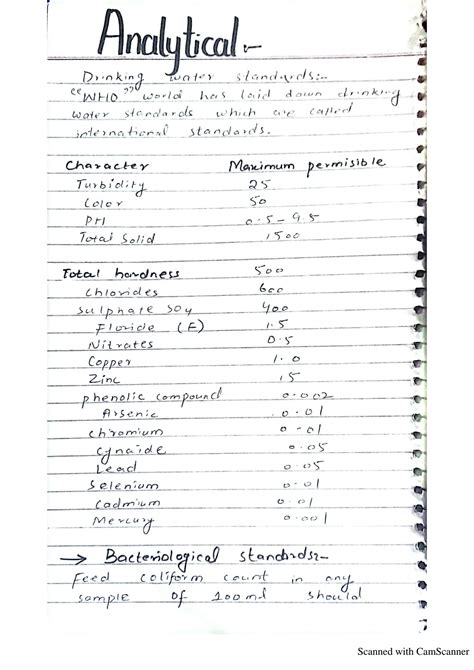 Analytical:-
Drinking water standards:-
"WHO" world has laid down drinking
water standards which are called
international standards.
Character Maximum permisible
Turbidity 25
Color 50
PH 0.5-9.5
Total Solid 1500
Total hardness 500
Chlorides 600
Sulphate SO4 400
Floride (F) 1.5
Nitrates 0.5
Copper 1.0
Zinc 15
phenolic compound 0.002
Arsenic 0.01
chromium 0-01
Cynaide 0.05
Lead 0.05
Selenium 0.01
Cadmium 0.01
Mercury 0.001
→ Bacteriological standards:-
Feed coliform count in any
sample of 100ml should
Scanned with CamScanner